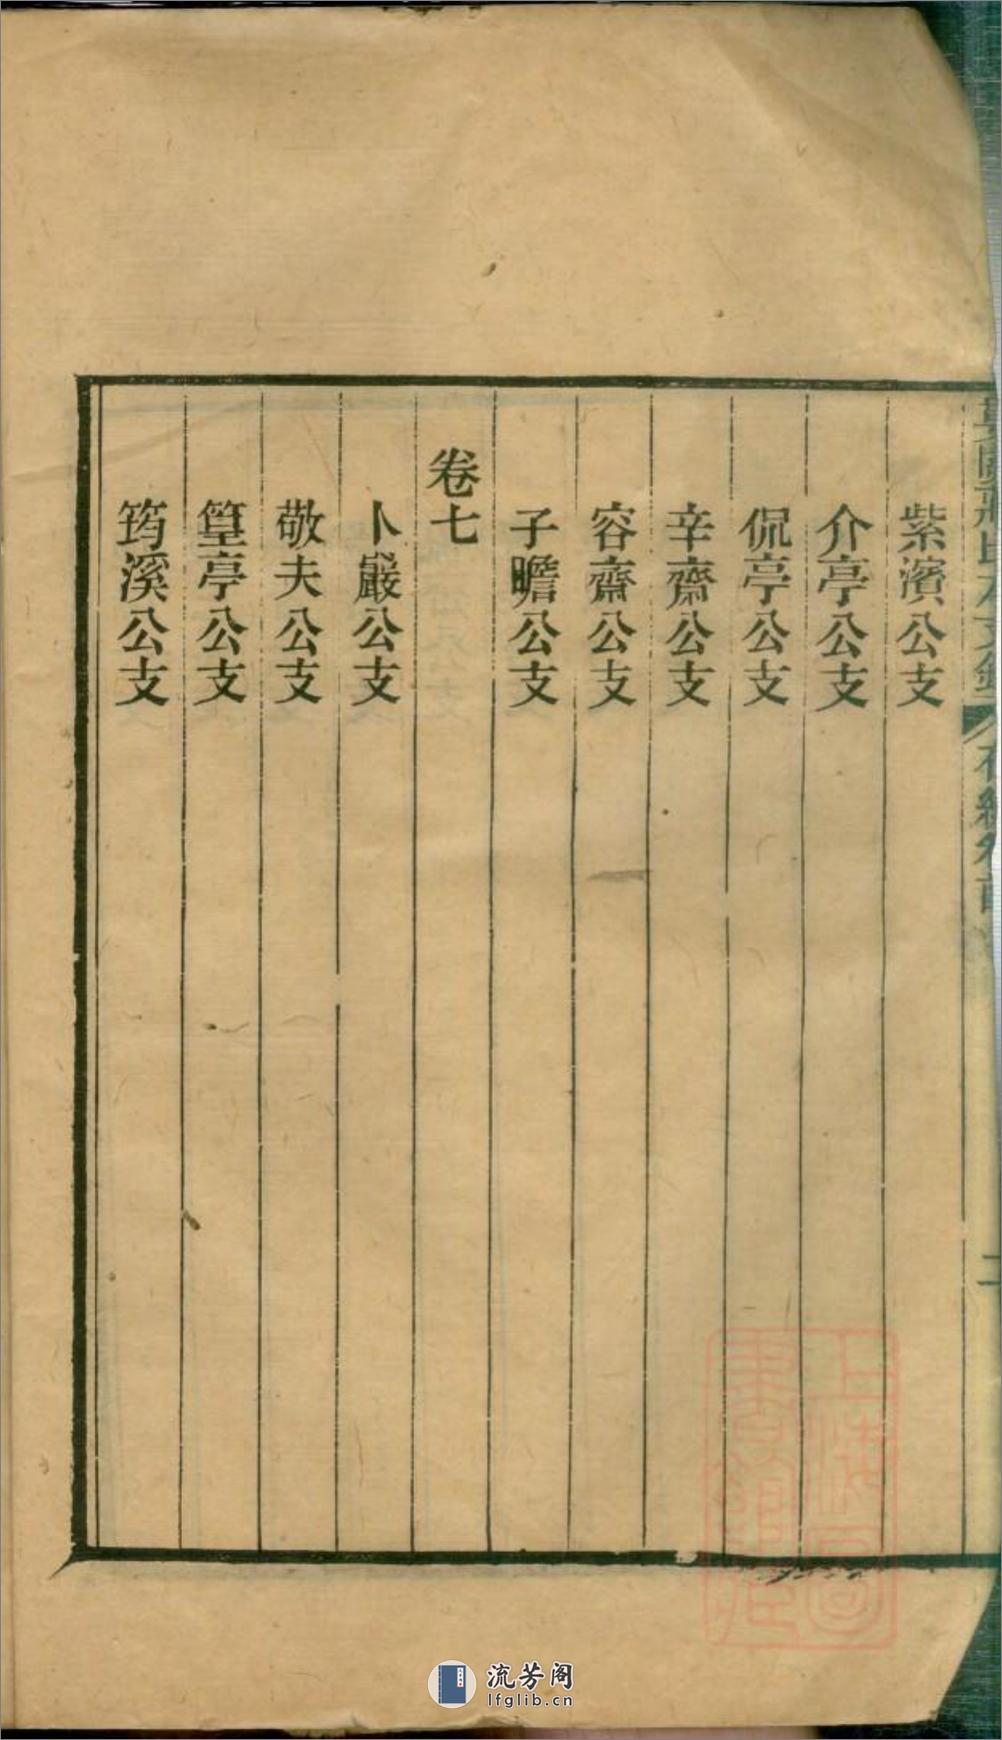 紫濱公支
介亭公支
侃亭公支
辛齋公支
容齋公支
子瞻公支
卷七
卜巖公支
敬夫公支
篁亭公支
筠溪公支
流芳阁
lfglib.cn